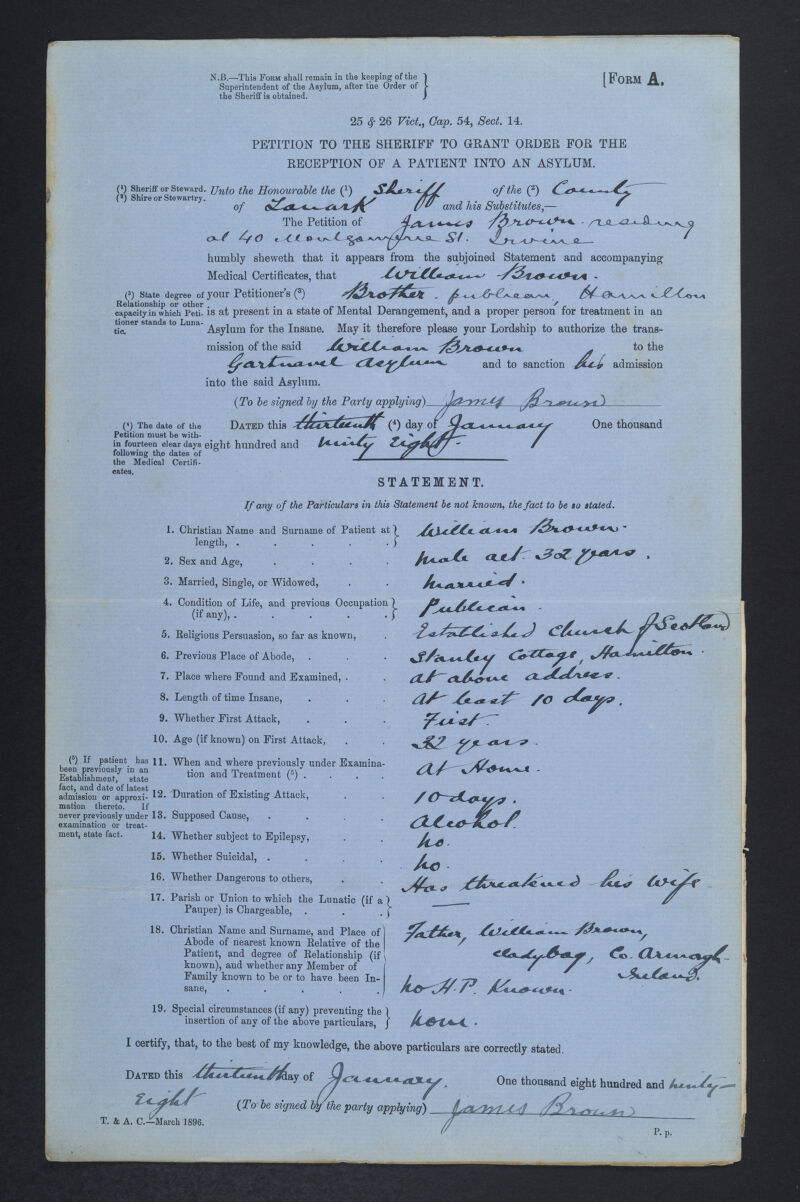 N.B.—This Form shall remain in the keeping of the
Superintendent of the Asylum, after the Order of
the Sheriff is obtained.
[Form A.
25 & 26 Vict., Cap. 54, Sect. 14.
PETITION TO THE SHERIFF TO GRANT ORDER FOR THE
RECEPTION OF A PATIENT INTO AN ASYLUM.
(1) Sheriff or Steward.
(2) Shire or Stewartry.
Unto the Honourable the (1) Sheriff of the (2) County
of Lanark and his Substitutes,—
The Petition of James Brown residing
at 40 Montgomerie St. Irvine
humbly sheweth that it appears from the subjoined Statement and accompanying
Medical Certificates, that William Brown.
(3) State degree of
Relationship or other
capacity in which Peti-
tioner stands to Luna-
tic.
your Petitioner's (3) Brother. publican, Hamilton
is at present in a state of Mental Derangement, and a proper person for treatment in an
Asylum for the Insane. May it therefore please your Lordship to authorize the trans-
mission of the said William Brown to the
Gartnavel Asylum and to sanction his admission
into the said Asylum.
(To be signed by the Party applying) James Brown
(4) The date of the
Petition must be with-
in fourteen clear days
following the dates of
the Medical Certifi-
cates.
Dated this thirteenth (4) day of January One thousand
eight hundred and ninty Eight.
STATEMENT.
If any of the Particulars in this Statement be not known, the fact to be so stated.
1. Christian Name and Surname of Patient at
length, . . . . . William Brown.
2. Sex and Age, . . . . male aet. 32 years.
3. Married, Single, or Widowed, . . married.
4. Condition of Life, and previous Occupation
(if any), . . . . . Publican.
5. Religious Persuasion, so far as known, . Established Church of Scotland
6. Previous Place of Abode, . . . Stanley Cottage, Hamilton.
7. Place where Found and Examined, . . at above address.
8. Length of time Insane, . . . At least 10 days.
9. Whether First Attack, . . . First.
10. Age (if known) on First Attack, . . 32 years.
(5) If patient has
been previously in an
Establishment, state
fact, and date of latest
admission or approxi-
mation thereto. If
never previously under
examination or treat-
ment, state fact.
11. When and where previously under Examina-
tion and Treatment (5) . . . . At Home.
12. Duration of Existing Attack, . . 10 days.
13. Supposed Cause, . . . . Alcohol.
14. Whether subject to Epilepsy, . . no.
15. Whether Suicidal, . . . . no.
16. Whether Dangerous to others, . . Has threatened his Wife
17. Parish or Union to which the Lunatic (if a
Pauper) is Chargeable, . . . —
18. Christian Name and Surname, and Place of
Abode of nearest known Relative of the
Patient, and degree of Relationship (if
known), and whether any Member of
Family known to be or to have been In-
sane, . . . . .
Father, William Brown,
Co. Armagh
Ireland.
no H.P. Known.
19. Special circumstances (if any) preventing the
insertion of any of the above particulars, none.
I certify, that, to the best of my knowledge, the above particulars are correctly stated.
Dated this thirteenth day of January. One thousand eight hundred and ninty-
Eight (To be signed by the party applying) James Brown
T. & A. C.—March 1896.
P. p.